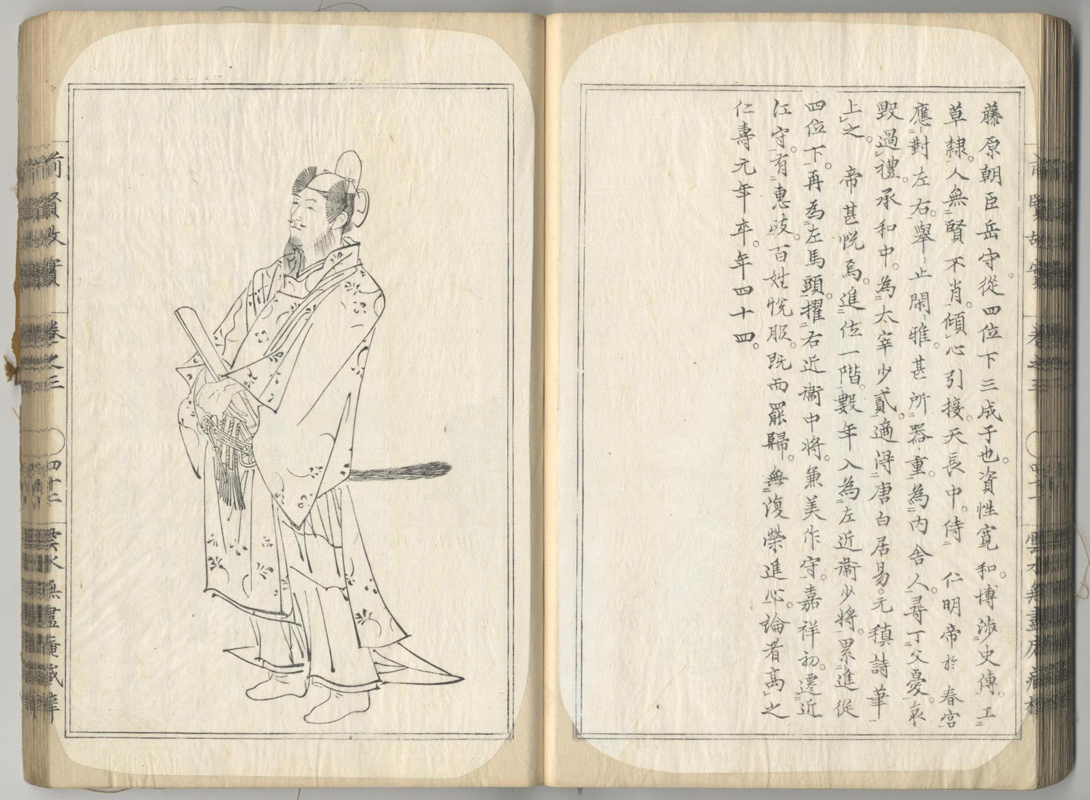 藤原朝臣岳守。從四位下三成子也。資性寛和。博渉史傳。工
草隸。人無賢不肖。傾心引接。天長中。侍 仁明帝於春宮
應對左右。舉止閑雅。甚所器重。為内舍人。尋丁父憂。哀
毀過禮。承和中。為太宰少貳。適得唐白居易。元稹詩筆
上之。 帝甚悦焉。進位一階。數年入為左近衛少將。累進從
四位下。再為左馬頭。擢右近衛中將。兼美作守。嘉祥初。遷近
江守。有惠政。百姓悦服。既而罷歸。無復榮進心。論者高之
仁壽元年卒。年四十四。
前賢故實 卷之三 〇四十二 雲水無盡庵藏梓